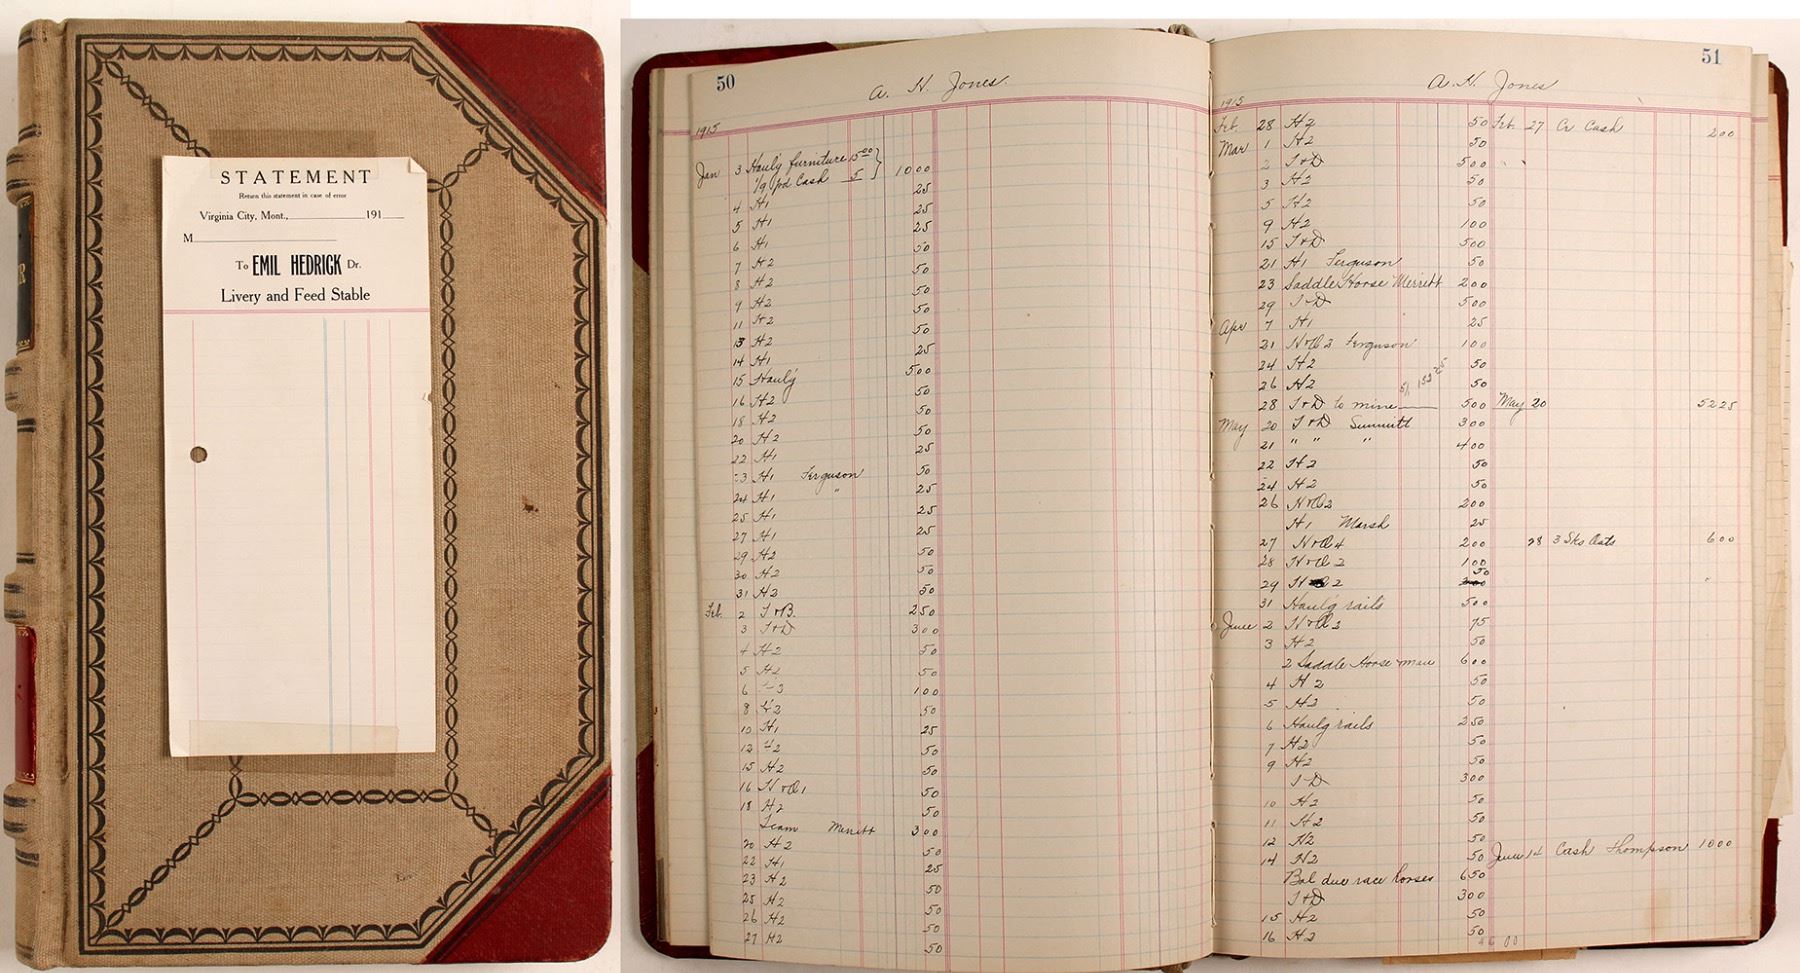 STATEMENT
Return this statement in case of error
Virginia City, Mont., 191
M
To EMIL HEDRICK Dr.
Livery and Feed Stable
R
50
A. H. Jones.
1915
Jan 3 Haulg furniture 15.00
pd Cash 5 } 1000
4 H1 25
5 H1 25
6 H1 25
7 H2 50
8 H2 50
9 H2 50
11 H2 50
13 H2 50
14 H1 25
15 Haulg 500
16 H2 50
18 H2 50
20 H2 50
22 H1 25
23 H1 Ferguson 50
24 H1 " 25
25 H1 25
27 H1 25
29 H2 50
30 H2 50
31 H2 50
Feb. 2 T+B. 250
3 T+D 300
4 H2 50
5 H2 50
6 3 100
8 H2 50
10 H1 25
12 H2 50
15 H2 50
16 H+O1 50
18 H2 50
Team Merritt 300
20 H2 50
22 H1 25
23 H2 50
25 H2 50
26 H2 50
27 H2 50
51
A. H. Jones
1915
Feb. 28 H2 50 Feb. 27 Cr Cash 200
Mar 1 H2 50
2 T+D 500
3 H2 50
5 H2 50
9 H2 100
15 T+D 500
21 H1 Ferguson 50
23 Saddle Horse Merritt 200
29 T+D 500
Apr 7 H1 25
21 H+O2 Ferguson 100
24 H2 50
26 H2 50
28 T+D to mine 500 May 20 5225
May 20 T+D Summitt 300
21 " " " 400
22 H2 50
24 H2 50
26 H+O2 200
H1 Marsh 25
27 H+O4 200 28 3 Sks Oats 600
28 H+O2 100
29 H 2 50
31 Haulg rails 500
June 2 H+O2 75
3 H2 50
2 Saddle Horse man 600
4 H2 50
5 H2 50
6 Haulg rails 250
7 H2 50
9 H2 50
T+D 300
10 H2 50
11 H2 50
12 H2 50
14 H2 50 June 14 Cash Thompson 1000
Bal due race horses 650
T+D 300
15 H2 50
16 H2 50